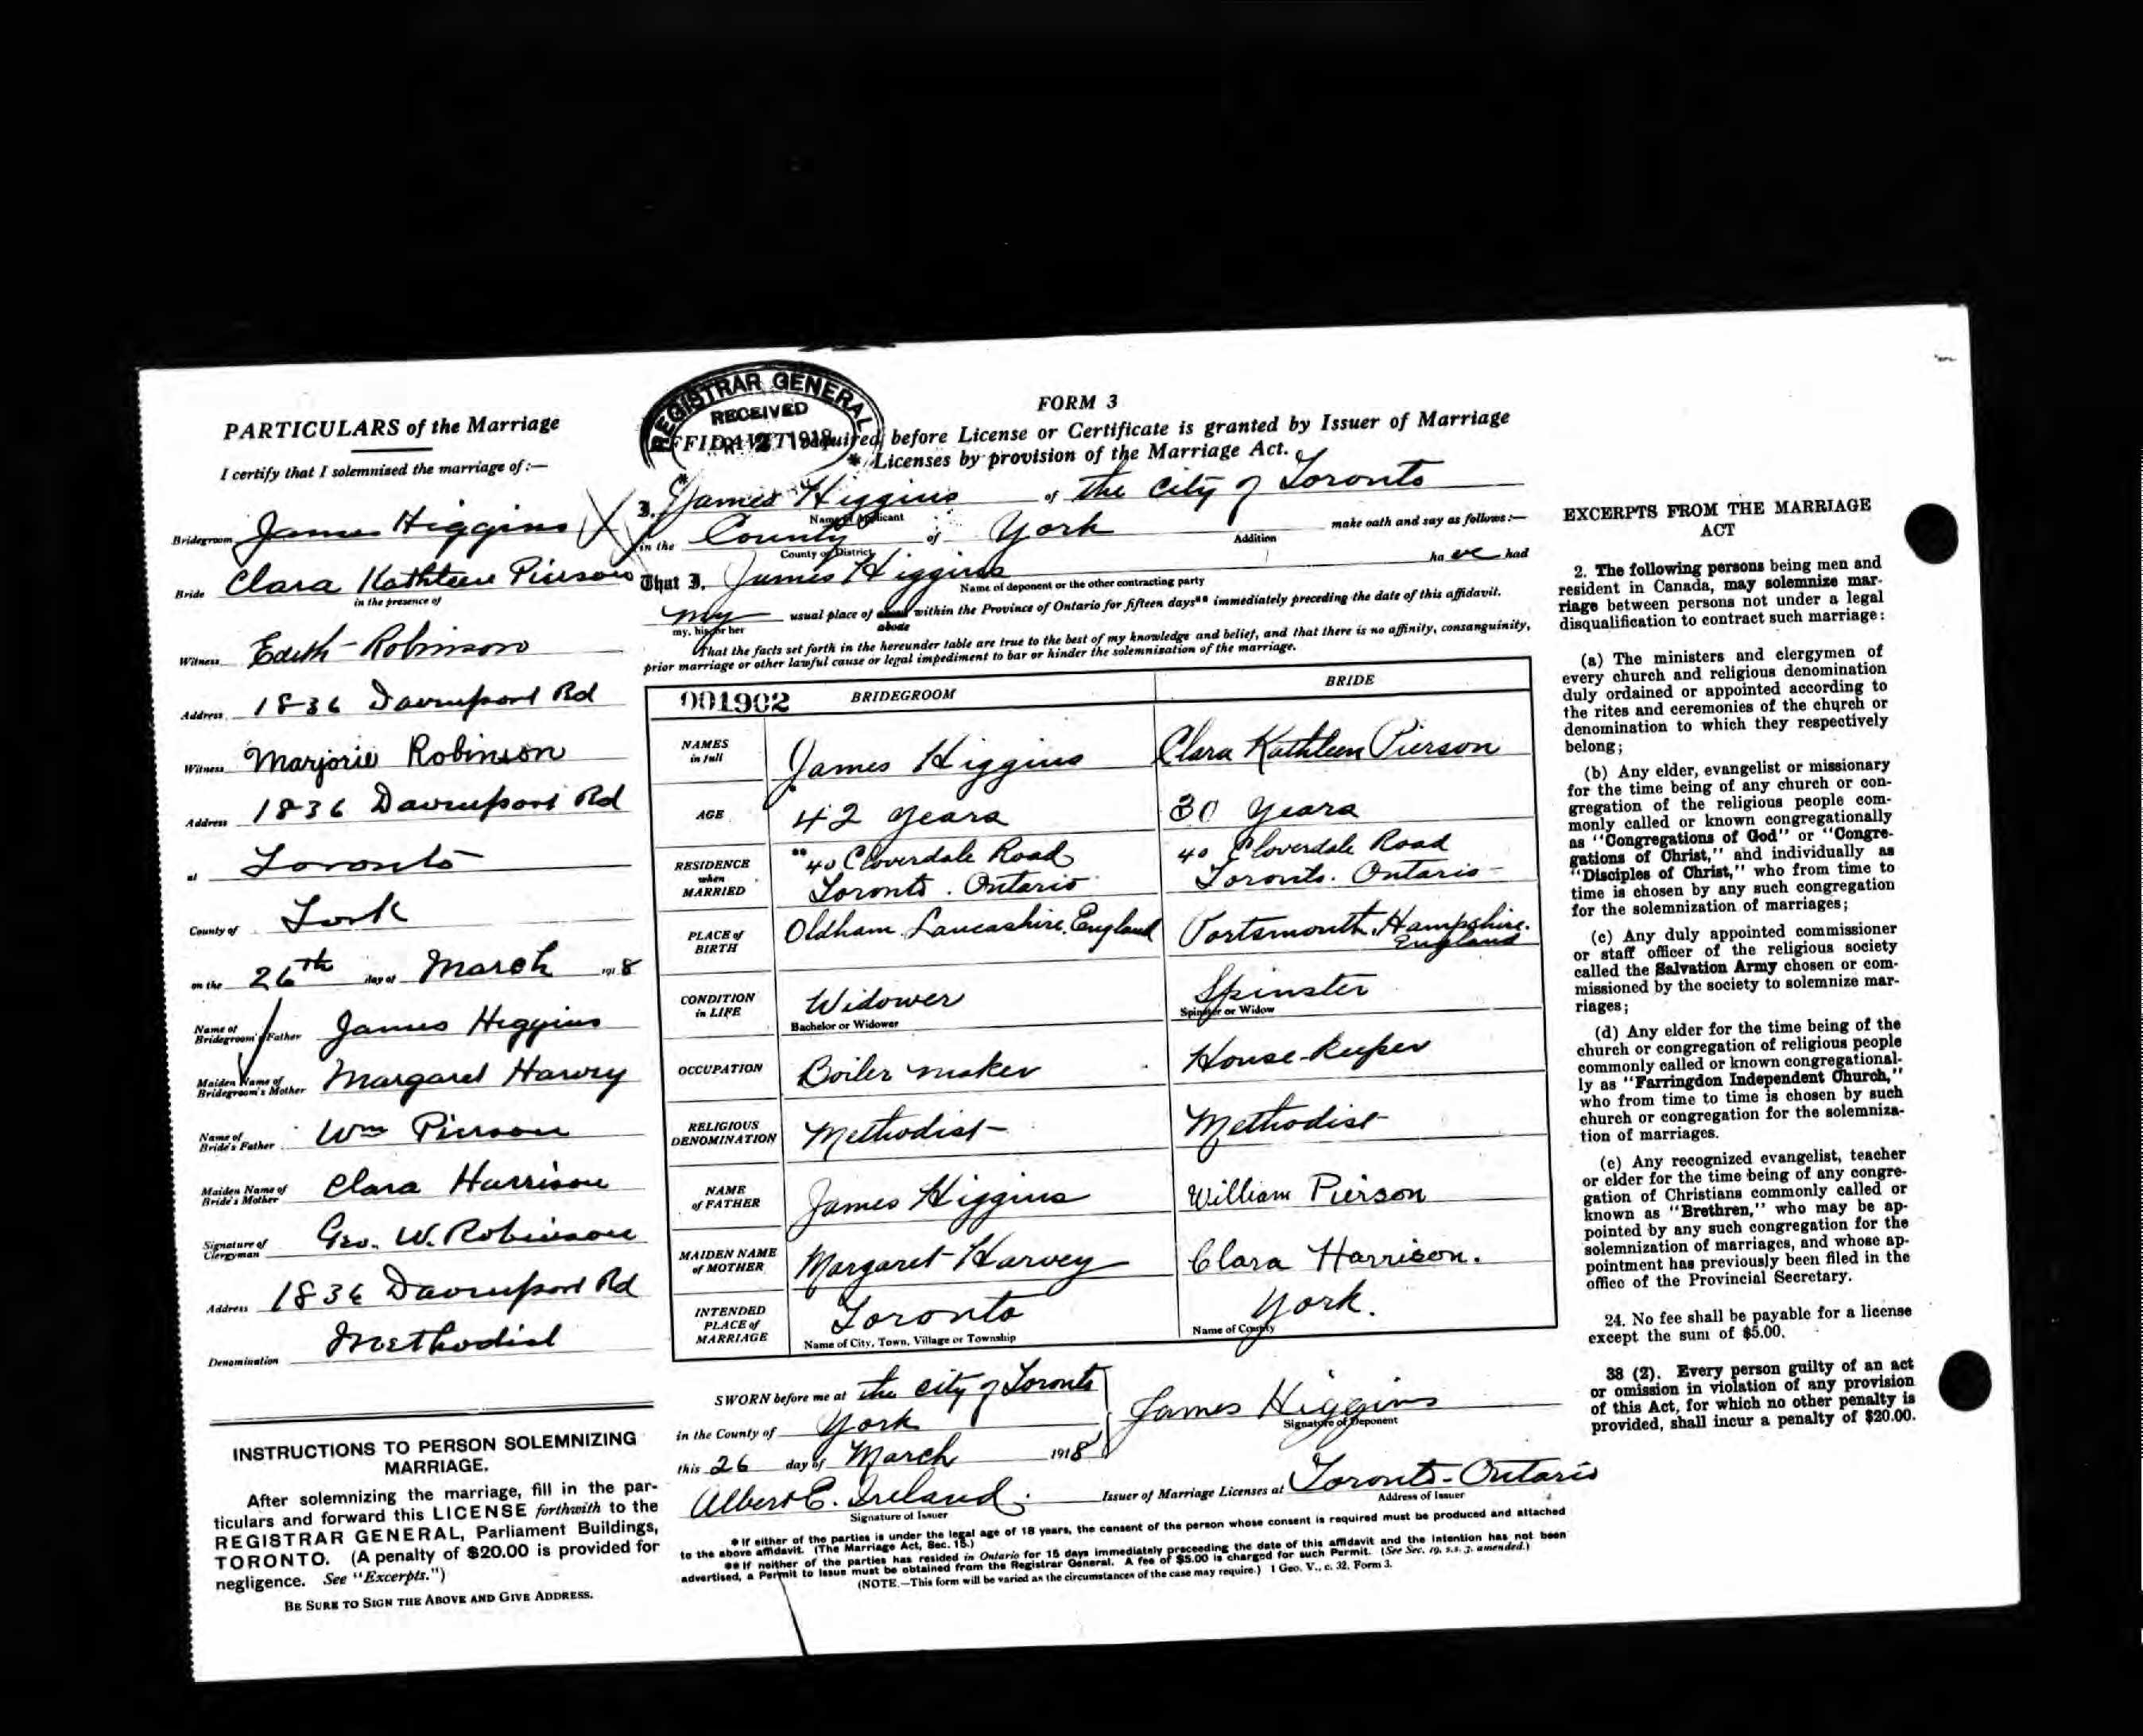 PARTICULARS of the Marriage
I certify that I solemnized the marriage of:—
Bridegroom James Higgins
Bride Clara Kathleen Pierson
in the presence of
Witness Edith Robinson
Address 1836 Davenport Rd
Witness Marjorie Robinson
Address 1836 Davenport Rd
at Toronto
County of York
on the 26th day of March 1918
Name of Bridegroom's Father James Higgins
Maiden Name of Bridegroom's Mother Margaret Harvey
Name of Bride's Father Wm Pierson
Maiden Name of Bride's Mother Clara Harrison
Signature of Clergyman Geo. W. Robinson
Address 1836 Davenport Rd
Denomination Methodist
INSTRUCTIONS TO PERSON SOLEMNIZING
MARRIAGE.
After solemnizing the marriage, fill in the par-
ticulars and forward this LICENSE forthwith to the
REGISTRAR GENERAL, Parliament Buildings,
TORONTO. (A penalty of $20.00 is provided for
negligence. See "Excerpts.")
BE SURE TO SIGN THE ABOVE AND GIVE ADDRESS.
REGISTRAR GENERAL
RECEIVED
2 1918
FORM 3
AFFIDAVIT required before License or Certificate is granted by Issuer of Marriage
* Licenses by provision of the Marriage Act.
I, James Higgins of the City of Toronto
Name of Applicant
in the County of York make oath and say as follows:—
County or District Addition
That I, James Higgins have had
Name of deponent or the other contracting party
my usual place of abode within the Province of Ontario for fifteen days** immediately preceding the date of this affidavit.
my, his or her abode
That the facts set forth in the hereunder table are true to the best of my knowledge and belief, and that there is no affinity, consanguinity,
prior marriage or other lawful cause or legal impediment to bar or hinder the solemnization of the marriage.
001902 BRIDEGROOM BRIDE
NAMES in full James Higgins Clara Kathleen Pierson
AGE 42 years 30 years
RESIDENCE when MARRIED "40 Cloverdale Road Toronto. Ontario 40 Cloverdale Road Toronto. Ontario
PLACE of BIRTH Oldham Lancashire, England Portsmouth, Hampshire. England
CONDITION in LIFE Widower Spinster
Bachelor or Widower Spinster or Widow
OCCUPATION Boiler maker House-keeper
RELIGIOUS DENOMINATION Methodist Methodist
NAME of FATHER James Higgins William Pierson
MAIDEN NAME of MOTHER Margaret Harvey Clara Harrison.
INTENDED PLACE of MARRIAGE Toronto York.
Name of City, Town, Village or Township Name of County
SWORN before me at the City of Toronto
in the County of York
this 26 day of March 1918
James Higgins
Signature of Deponent
Albert E. Ireland. Issuer of Marriage Licenses at Toronto-Ontario
Signature of Issuer Address of Issuer
* If either of the parties is under the legal age of 18 years, the consent of the person whose consent is required must be produced and attached
to the above affidavit. (The Marriage Act, Sec. 15.)
** If neither of the parties has resided in Ontario for 15 days immediately preceeding the date of this affidavit and the intention has not been
advertised, a Permit to Issue must be obtained from the Registrar General. A fee of $5.00 is charged for such Permit. (See Sec. 19, s.s. 3, amended.)
(NOTE.—This form will be varied as the circumstances of the case may require.) 1 Geo. V., c. 32, Form 3.
EXCERPTS FROM THE MARRIAGE
ACT
2. The following persons being men and
resident in Canada, may solemnize mar-
riage between persons not under a legal
disqualification to contract such marriage:
(a) The ministers and clergymen of
every church and religious denomination
duly ordained or appointed according to
the rites and ceremonies of the church or
denomination to which they respectively
belong;
(b) Any elder, evangelist or missionary
for the time being of any church or con-
gregation of the religious people com-
monly called or known congregationally
as "Congregations of God" or "Congre-
gations of Christ," and individually as
"Disciples of Christ," who from time to
time is chosen by any such congregation
for the solemnization of marriages;
(c) Any duly appointed commissioner
or staff officer of the religious society
called the Salvation Army chosen or com-
missioned by the society to solemnize mar-
riages;
(d) Any elder for the time being of the
church or congregation of religious people
commonly called or known congregational-
ly as "Farringdon Independent Church,"
who from time to time is chosen by such
church or congregation for the solemniza-
tion of marriages.
(e) Any recognized evangelist, teacher
or elder for the time being of any congre-
gation of Christians commonly called or
known as "Brethren," who may be ap-
pointed by any such congregation for the
solemnization of marriages, and whose ap-
pointment has previously been filed in the
office of the Provincial Secretary.
24. No fee shall be payable for a license
except the sum of $5.00.
38 (2). Every person guilty of an act
or omission in violation of any provision
of this Act, for which no other penalty is
provided, shall incur a penalty of $20.00.